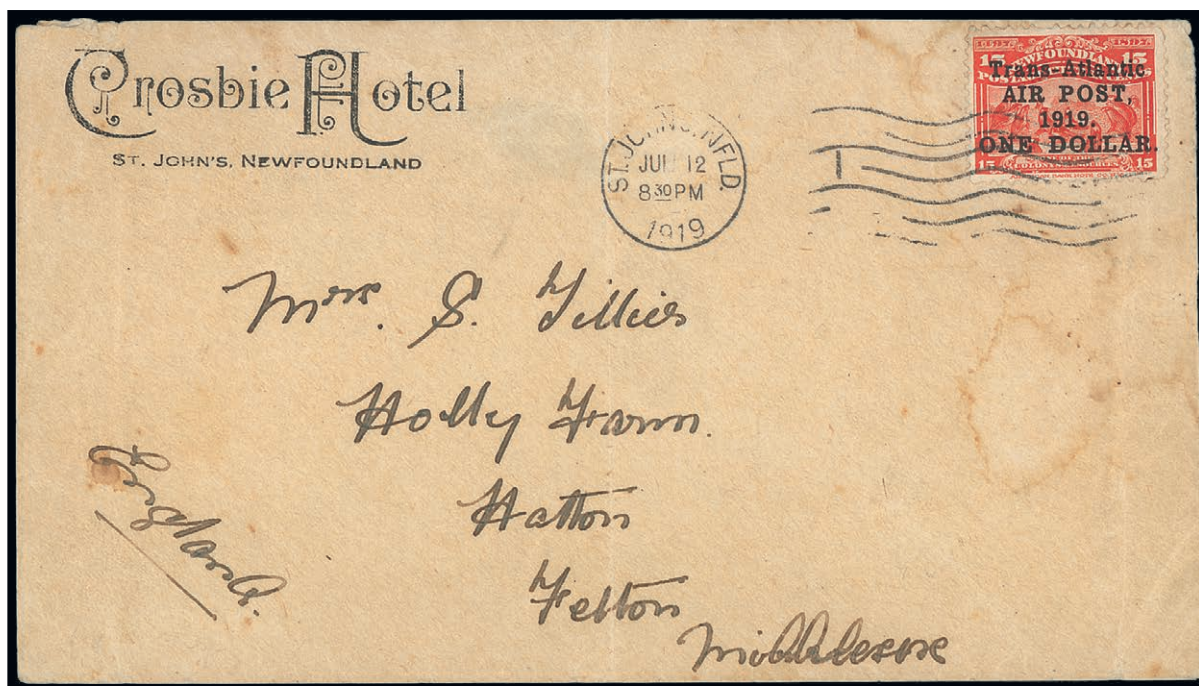 Crosbie Hotel
ST. JOHN'S, NEWFOUNDLAND
ST. JOHN'S, NFLD.
JUN 12
8 30 PM
1919
1497. 1897.
15 NEWFOUNDLAND 15
Trans-Atlantic
AIR POST,
1919.
ONE DOLLAR.
15 15
Mrs. S. Tillies
Holly Farm.
Hatton
Felton
Middlesex
England.